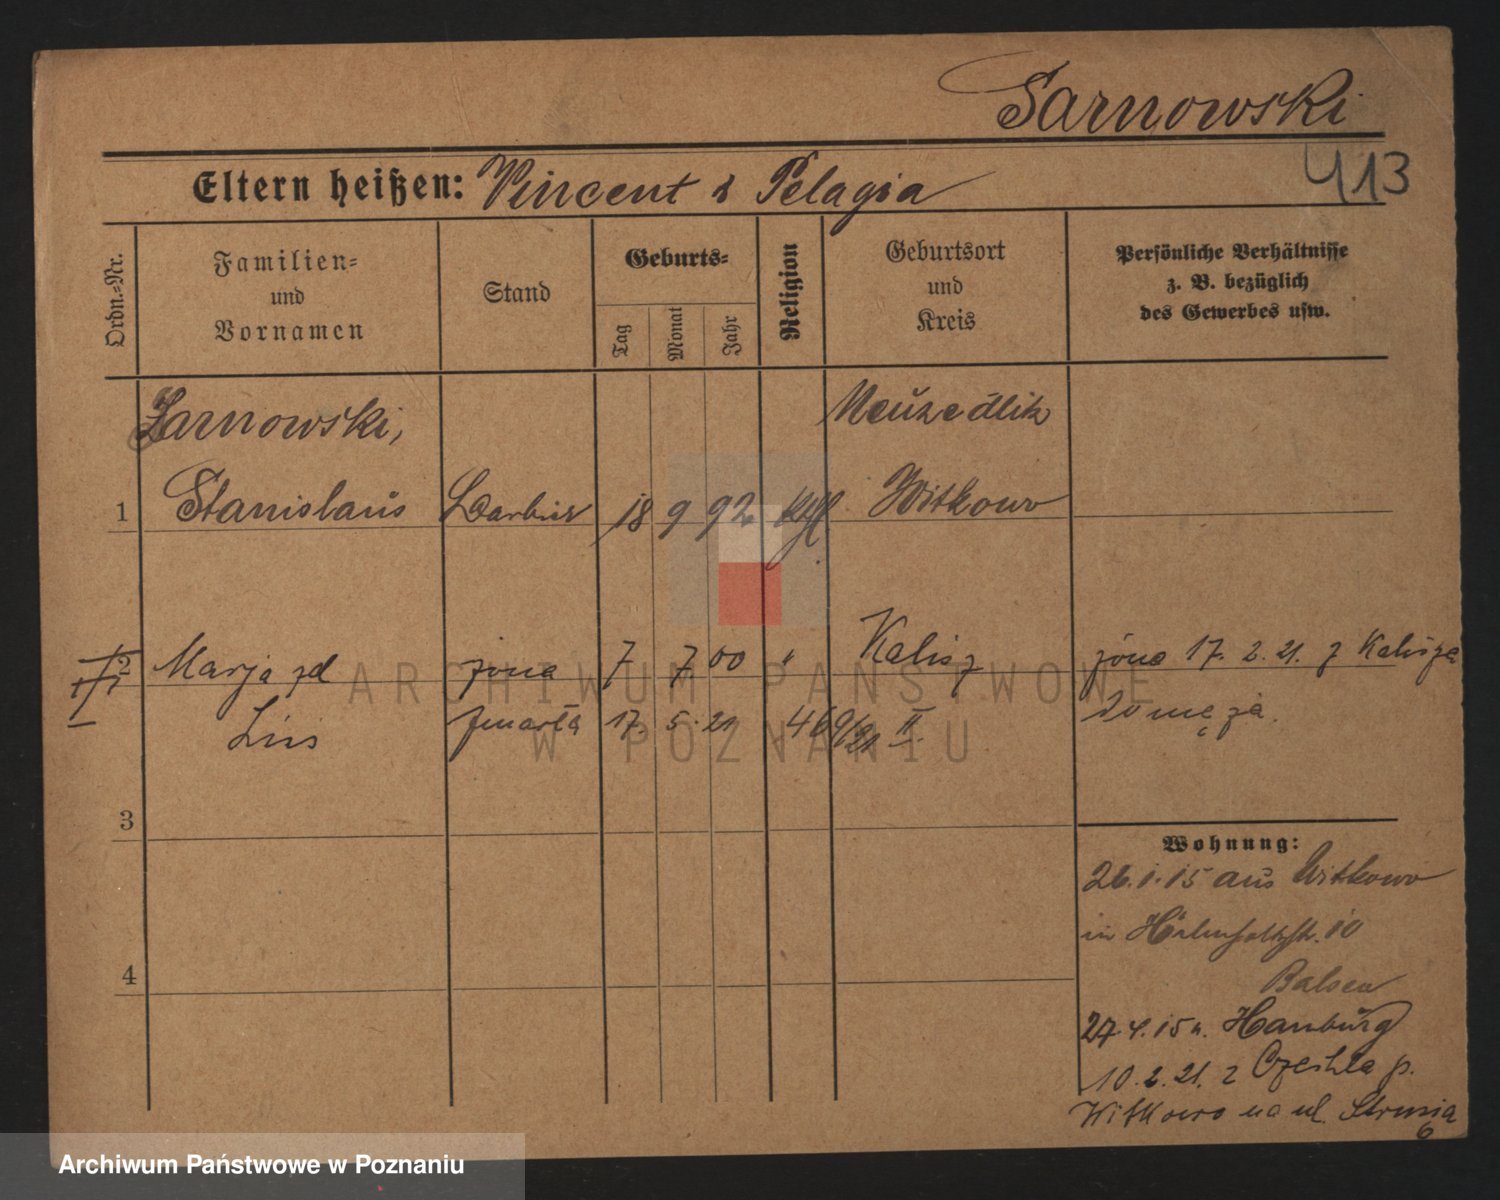 Sarnowski
413
Eltern heißen: Vincent & Pelagia
Ordn.-Nr.
Familien-
und
Vornamen
Stand
Geburts-
Tag
Monat
Jahr
Religion
Geburtsort
und
Kreis
Persönliche Verhältnisse
z. B. bezüglich
des Gewerbes usw.
Sarnowski,
1 Stanislaus Barbier 18 9 92 Witkowo
2 Marja zd żona 7 7 00 " Kalisz żona 17. 2. 21. z Kalisza
zmarła 17. 5. 21 469/21 II do męża.
3
4
Wohnung:
26.1.15 aus Witkowo
in 10
27.4.15 n. Hamburg
10.2.21. z p.
Witkowo na ul. Strusia
6
ARCHIWUM PAŃSTWOWE
W POZNANIU
Archiwum Państwowe w Poznaniu